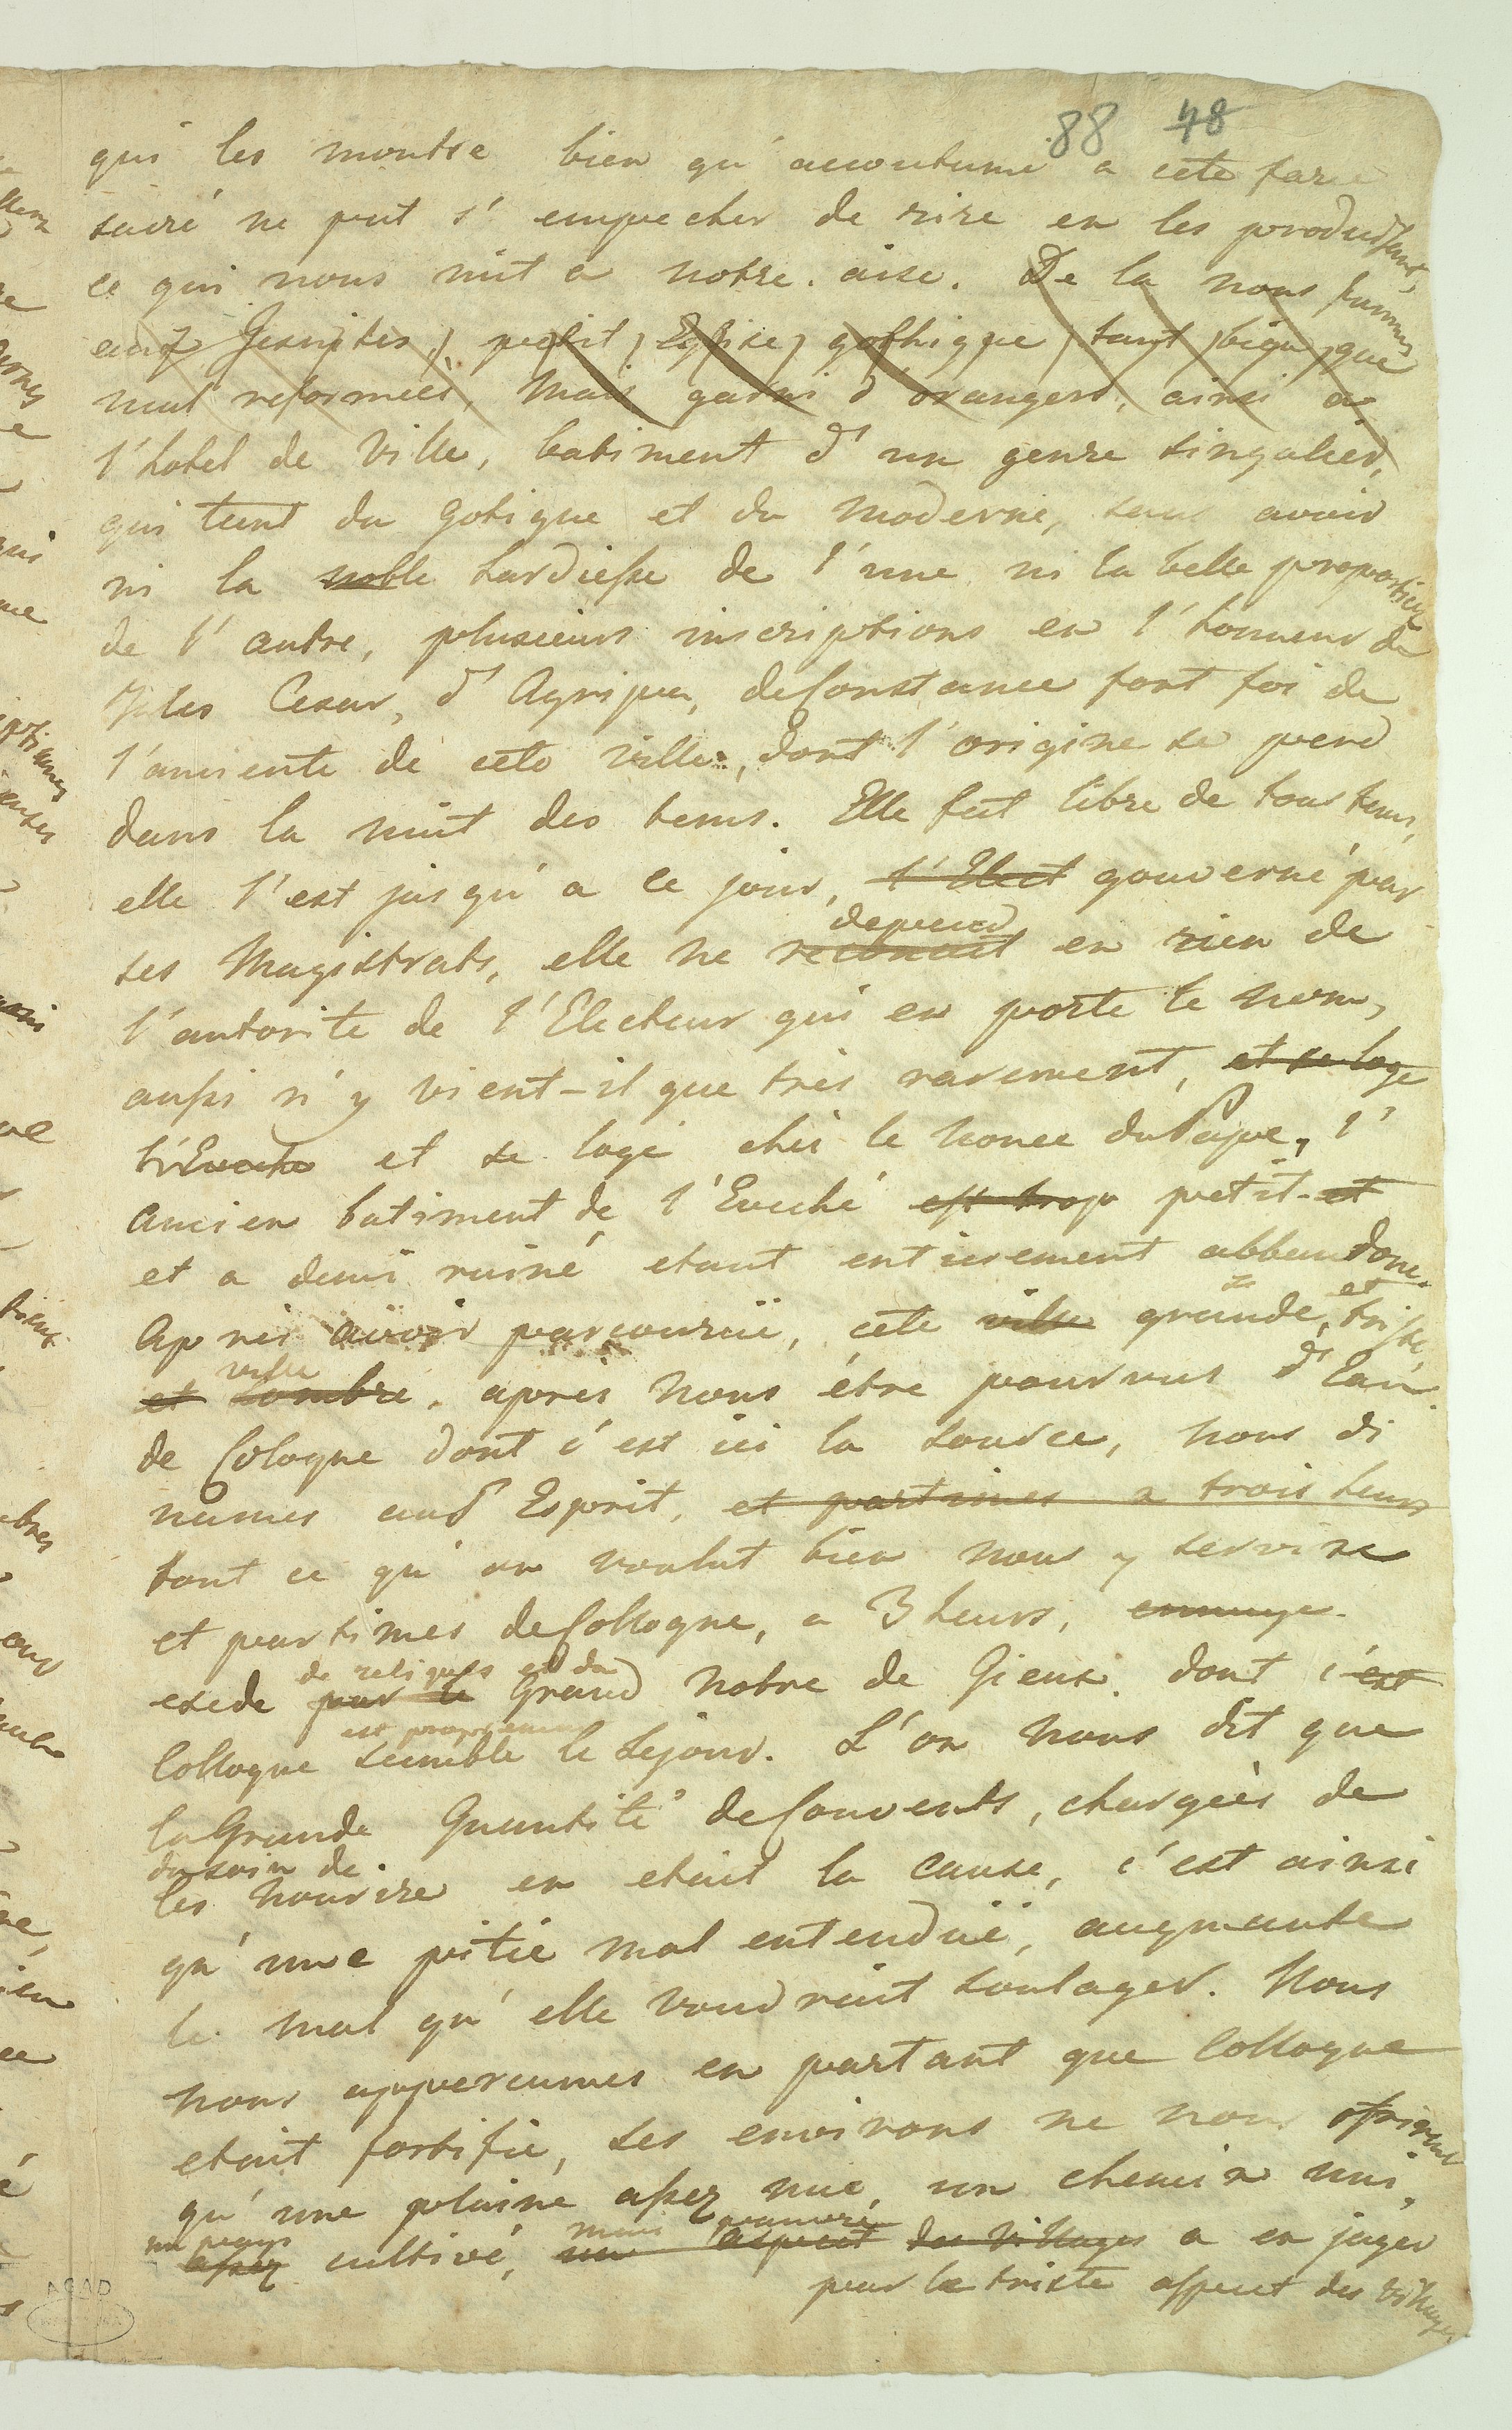 88 48
qui les montre bien qu'accoutumé a cete farce
sacré ne peut s'empecher de rire en les produisant,
ce qui nous mit a notre aise. De la nous fumes
aux Jesuites, petit Eglise gothique tant bien que
mal reformeés, Mais garni d'orangers, ainsi a
l'hotel de Ville, batiment d'un genre singulier,
qui tient du gotique et du moderne, sans avoir
ni la noble hardiesse de l'une ni la belle proportion
de l'autre, plusieurs inscriptions en l'honneur de
Jules Cesar, d'Agripa, de Constance font foi de
l'anciente de cete ville, dont l'origine se perd
dans la nuit des tems. Elle fut libre de tous tems,
elle l'est jusqu'a ce jour, l'Elect gouverné par
depend
ses Magistrats, elle ne reconait en rien de
l'autorite de l'Electeur qui en porte le nom,
aussi n'y vient-il que très rarement, et se loge
l'Eveche et se loge chés le nonce du Pape, l'
ancien batiment de l'Eveché est trop petit et
et a demi ruiné etant entierement abbandoné.
et
Après avoir parcouruë, cete ville grande, triste,
ville
et sombre, après nous être pourvus d'Eau
de Cologne dont c'est ici la source, nous di
names au St Esprit, et partimes a trois heurs
tout ce qu'on voulut bien nous y servire
et partimes de Collogne, a 3 heurs, ennuye
de reliques et du
exede par le Grand nobre de Gieux dont c'est
est proprement
Collogne semble le sejour. L'on nous dit que
la Grande Quantité de Couvents, chargeés de
du soin de
les nourire en etait la cause, c'est ainsi
qu'une pitie mal entenduë, augmente
le mal qu'elle voudrait soulager. Nous
nous appercumes en partant que Collogne
etait fortifié, ses environs ne nous offrirent
qu'une plaine assez nue, un chemin uni,
un pays mais
assez cultivé, aspect des villages a en juger
par le triste aspect des villages